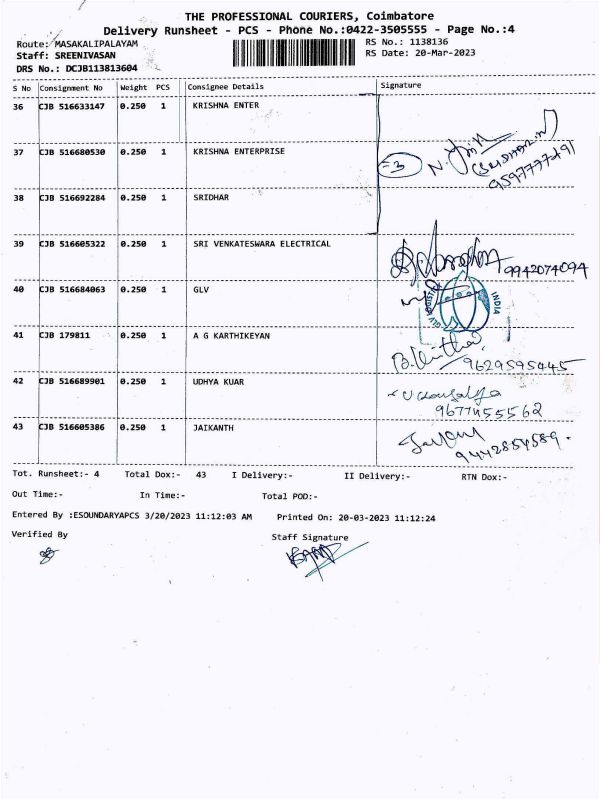 THE PROFESSIONAL COURIERS, Coimbatore
Delivery Runsheet - PCS - Phone No.:0422-3505555 - Page No.:4
Route: MASAKALIPALAYAM RS No.: 1138136
Staff: SREENIVASAN RS Date: 20-Mar-2023
DRS No.: DCJB113813604
S No Consignment No Weight PCS Consignee Details Signature
36 CJB 516633147 0.250 1 KRISHNA ENTER
37 CJB 516680530 0.250 1 KRISHNA ENTERPRISE
=3 9597777291
38 CJB 516692284 0.250 1 SRIDHAR
39 CJB 516605322 0.250 1 SRI VENKATESWARA ELECTRICAL
9942074094
40 CJB 516684063 0.250 1 GLV
GLV INDIA
41 CJB 179811 0.250 1 A G KARTHIKEYAN
9629595445
42 CJB 516689901 0.250 1 UDHYA KUAR
9677455562
43 CJB 516605386 0.250 1 JAIKANTH
9442854589.
Tot. Runsheet:- 4 Total Dox:- 43 I Delivery:- II Delivery:- RTN Dox:-
Out Time:- In Time:- Total POD:-
Entered By :ESOUNDARYAPCS 3/20/2023 11:12:03 AM Printed On: 20-03-2023 11:12:24
Verified By Staff Signature